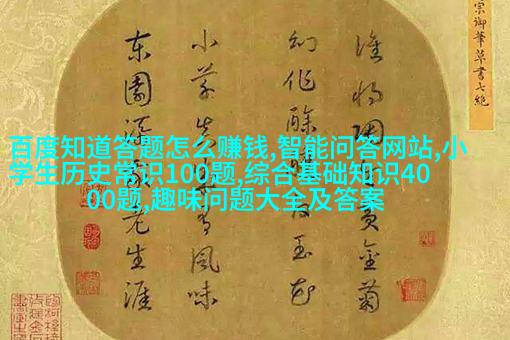 百度知道答题怎么赚钱,智能问答网站,小
学生历史常识100题,综合基础知识40
00题,趣味问题大全及答案
宗御筆草書七絶
誰將陶黃金菊
幻作酴玉花
小草真有風味
東園添老生涯